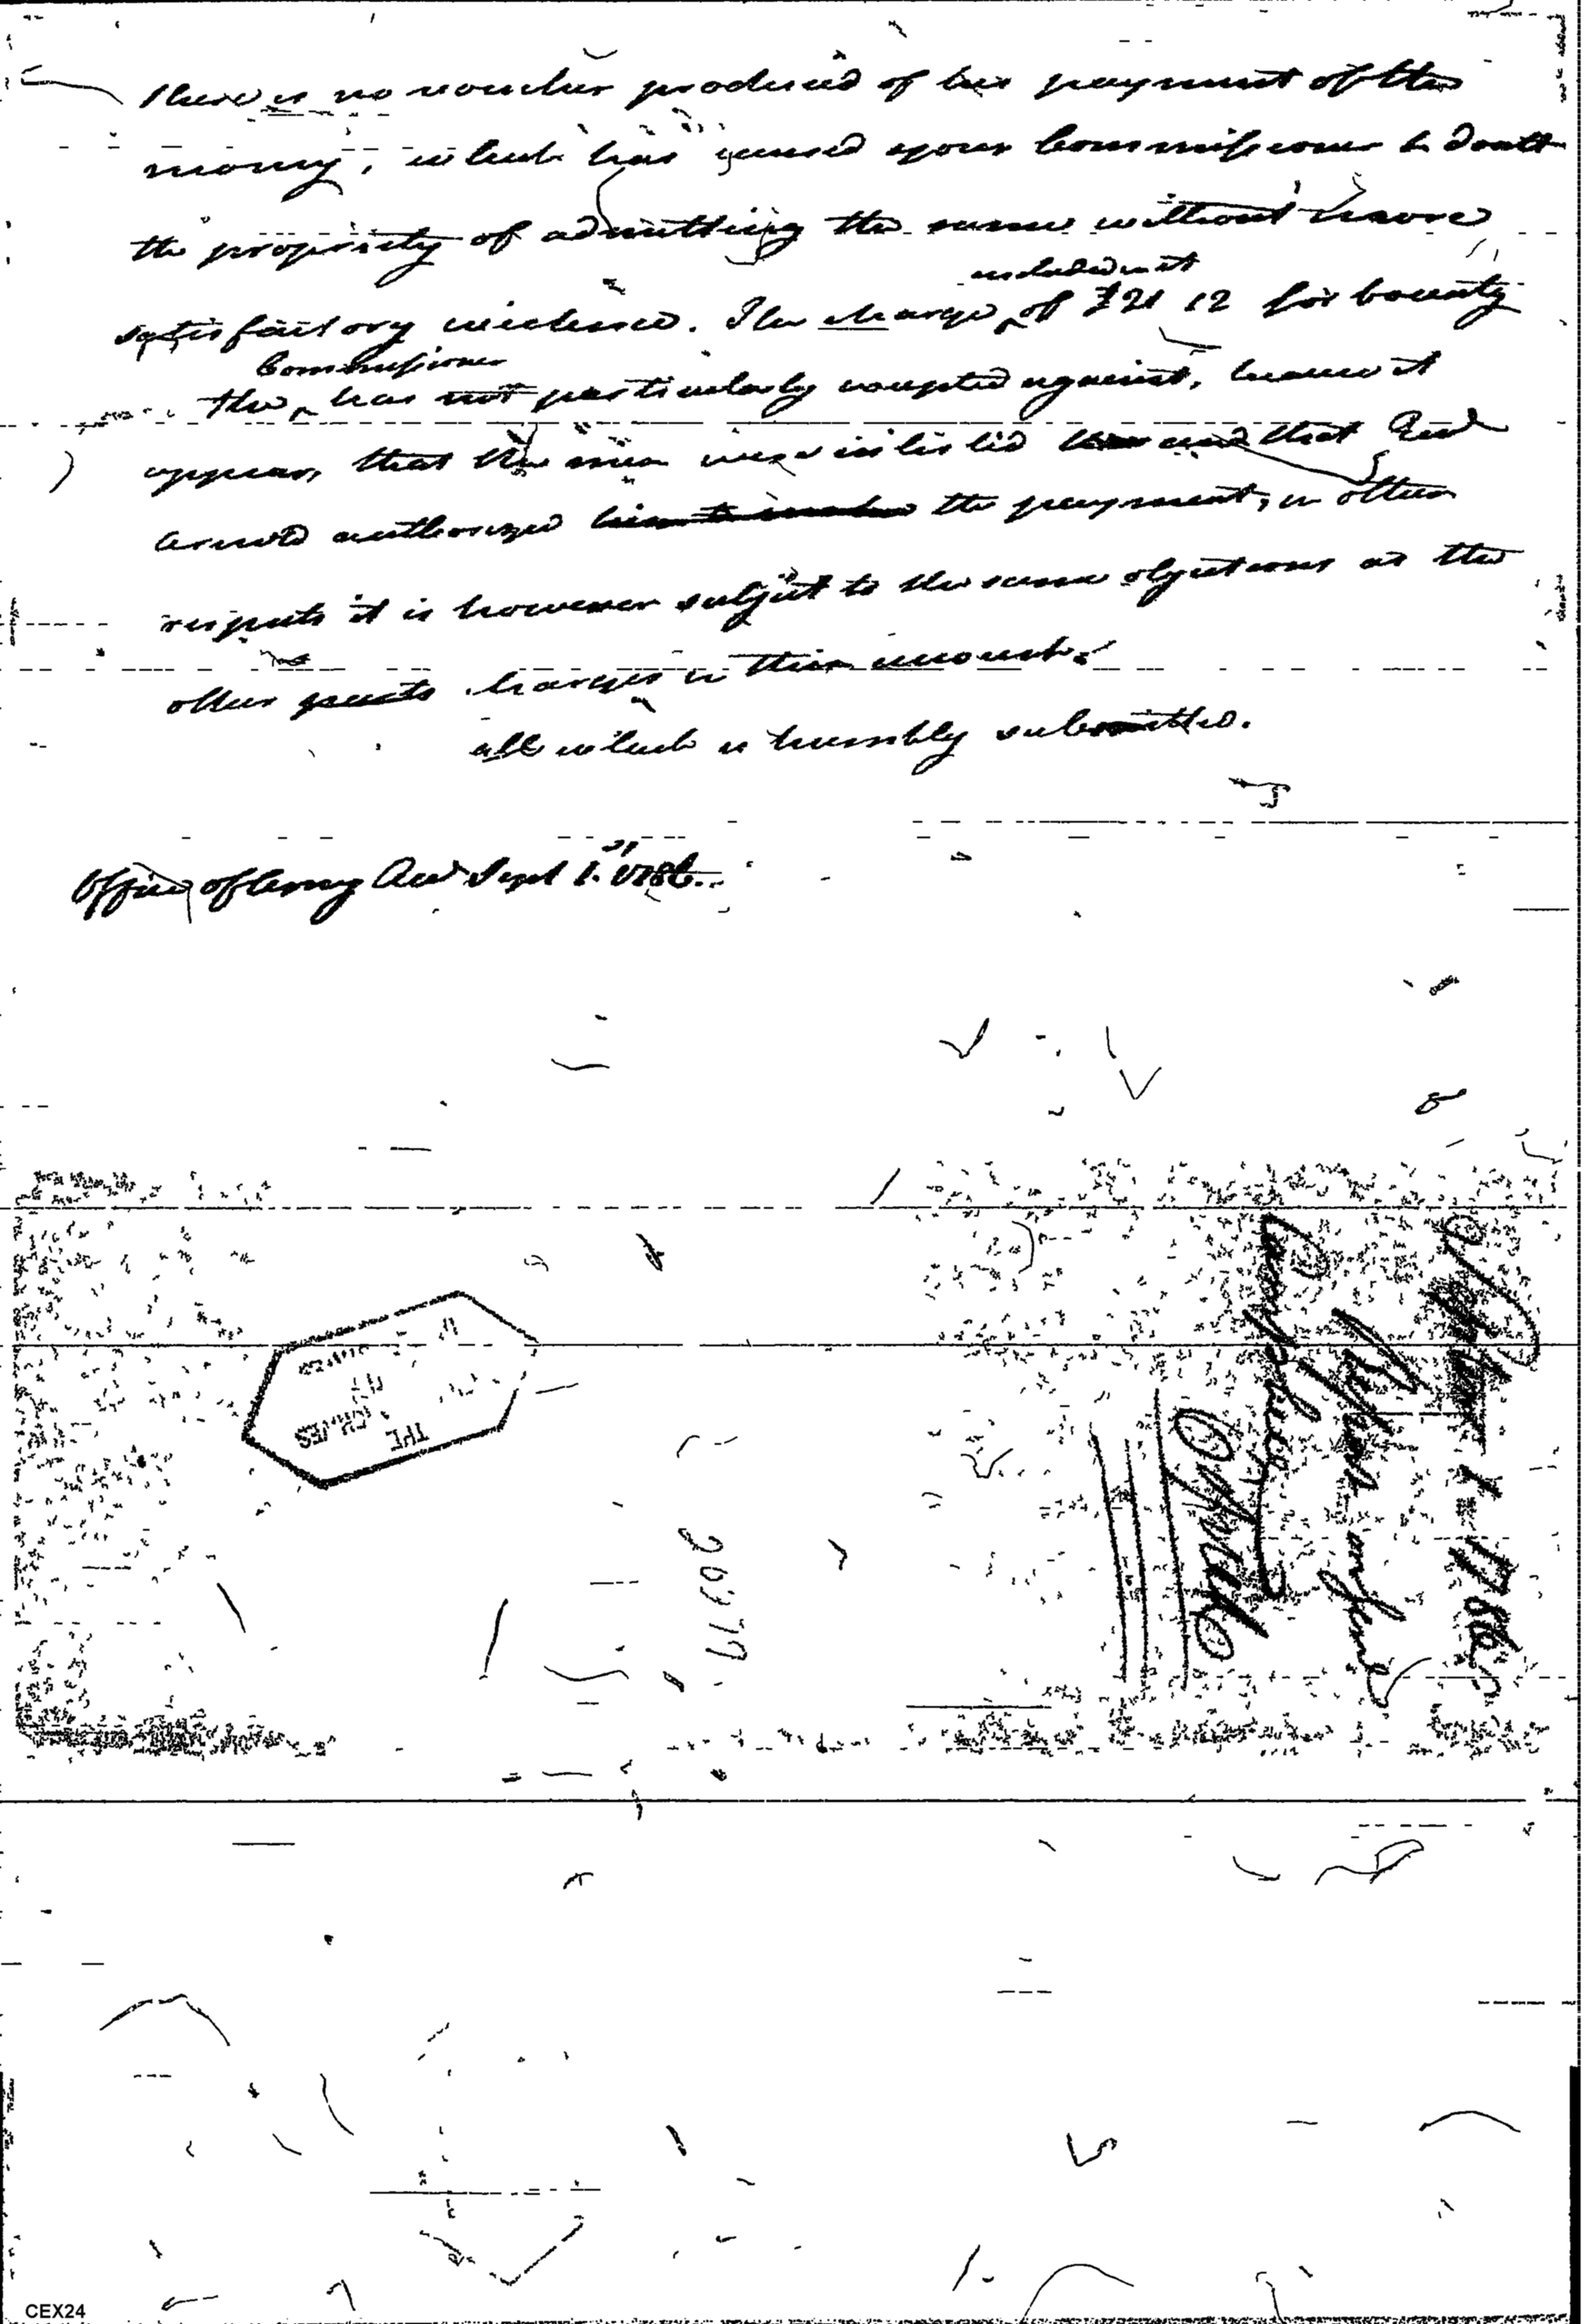 there is no voucher produced of his payment of the
money, which has caused your Commissioner to doubt
the propriety of admitting the same without more
included in it
satisfactory evidence. The charge of £21 12 for bounty
Commissioner
the has not particularly excepted against, because it
appears, that the men were inlisted and that Genl
Arnold authorized the payment, in other
respects it is however subject to the same objections as the
other charges in their accounts.
all which is humbly submitted.
Office of Army Acc Sept 1st 1786.
September 1 - 1786
Report on Genl
Office
20377
THE
CEX24